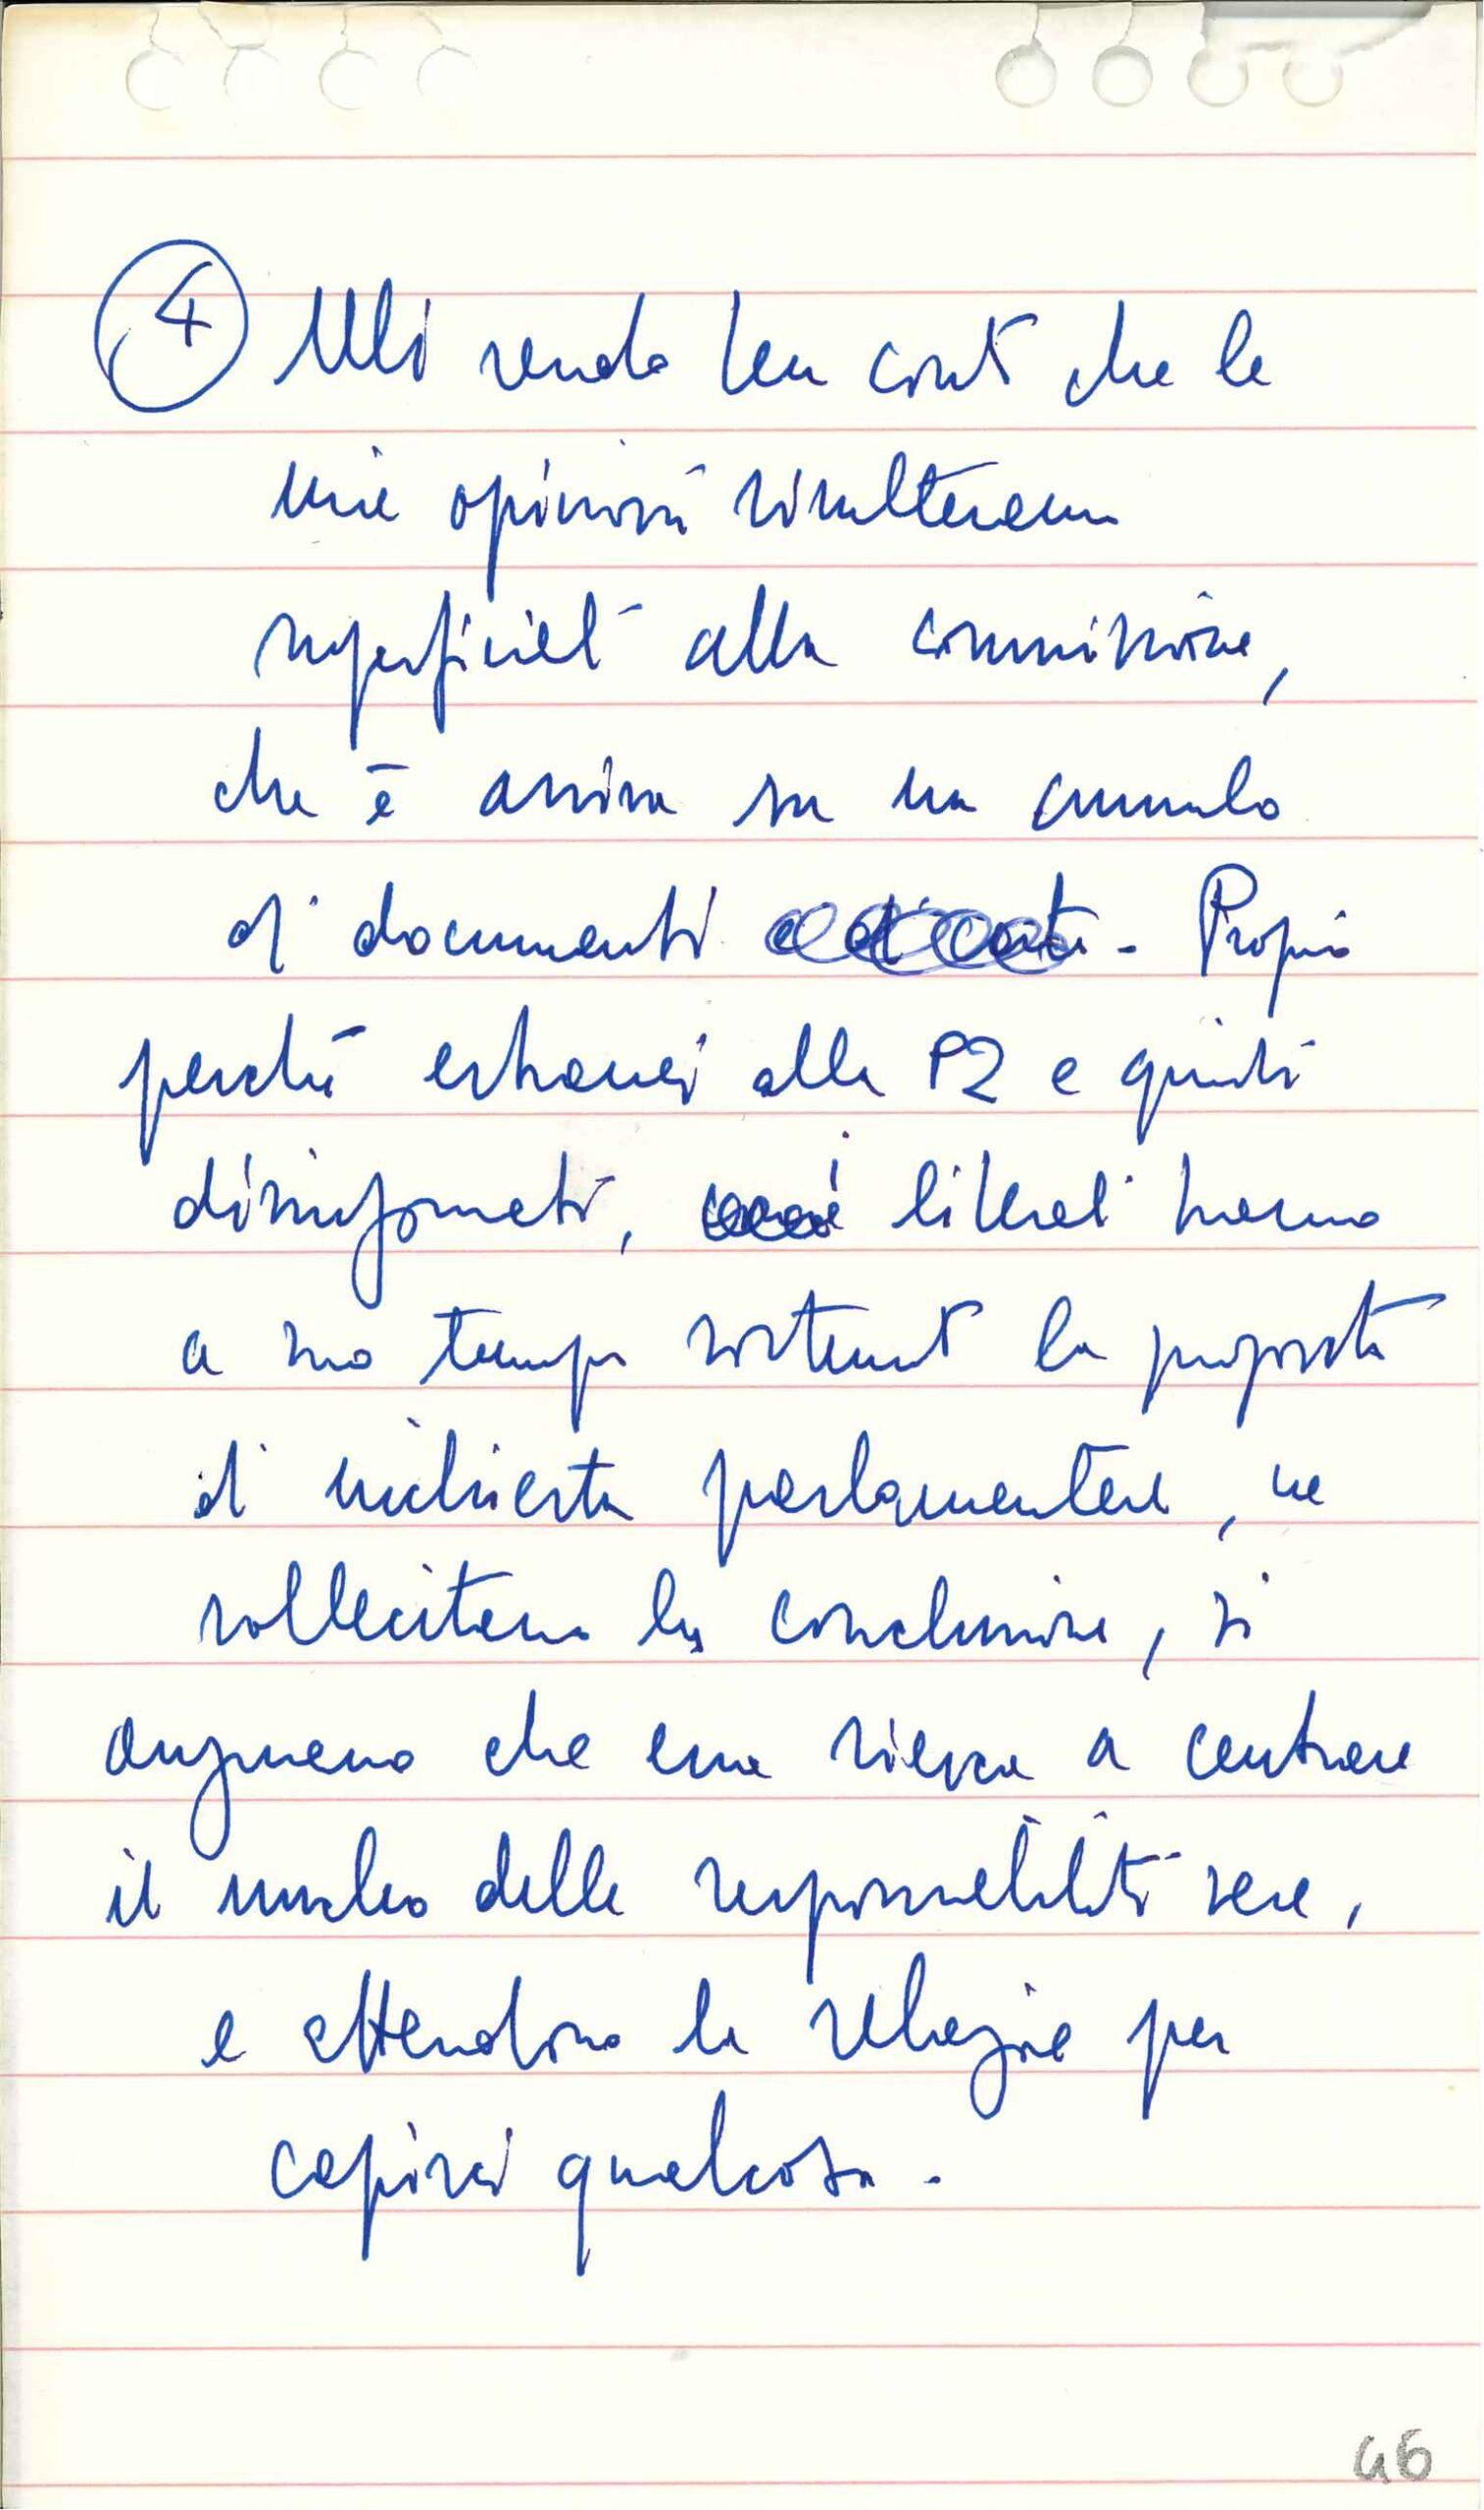 ④ Mi rendo ben conto che le
mie opinioni risulteranno
superficiali alla commissione,
che è assisa su un cumulo
di documenti e di carte. Proprio
perché estranei alla P2 e quindi
disinformati, i liberali hanno
a suo tempo sostenuto la proposta
di inchiesta parlamentare, ne
sollecitano la conclusione, si
augurano che essa riesca a centrare
il nucleo delle responsabilità vere,
e attendono la relazione per
capirci qualcosa.
46